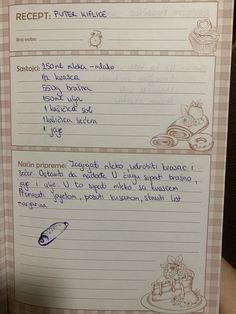 RECEPT: PUTER KIFLICE
Broj osoba:
Sastojci: 250ml mleka - mlako
1/2 kvasca
550g brašna
150ml ulja
1 kašičica soli
1 kašičica šećera
1 jaje
Način pripreme: Zagrejati mleko, udrobiti kvasac i
šećer. Ostaviti da nadođe. U činiju sipati brašno,
jaje i ulje. U to sipati mleko sa kvascem
Premazati jajetom, posuti susamom, staviti list
margarina